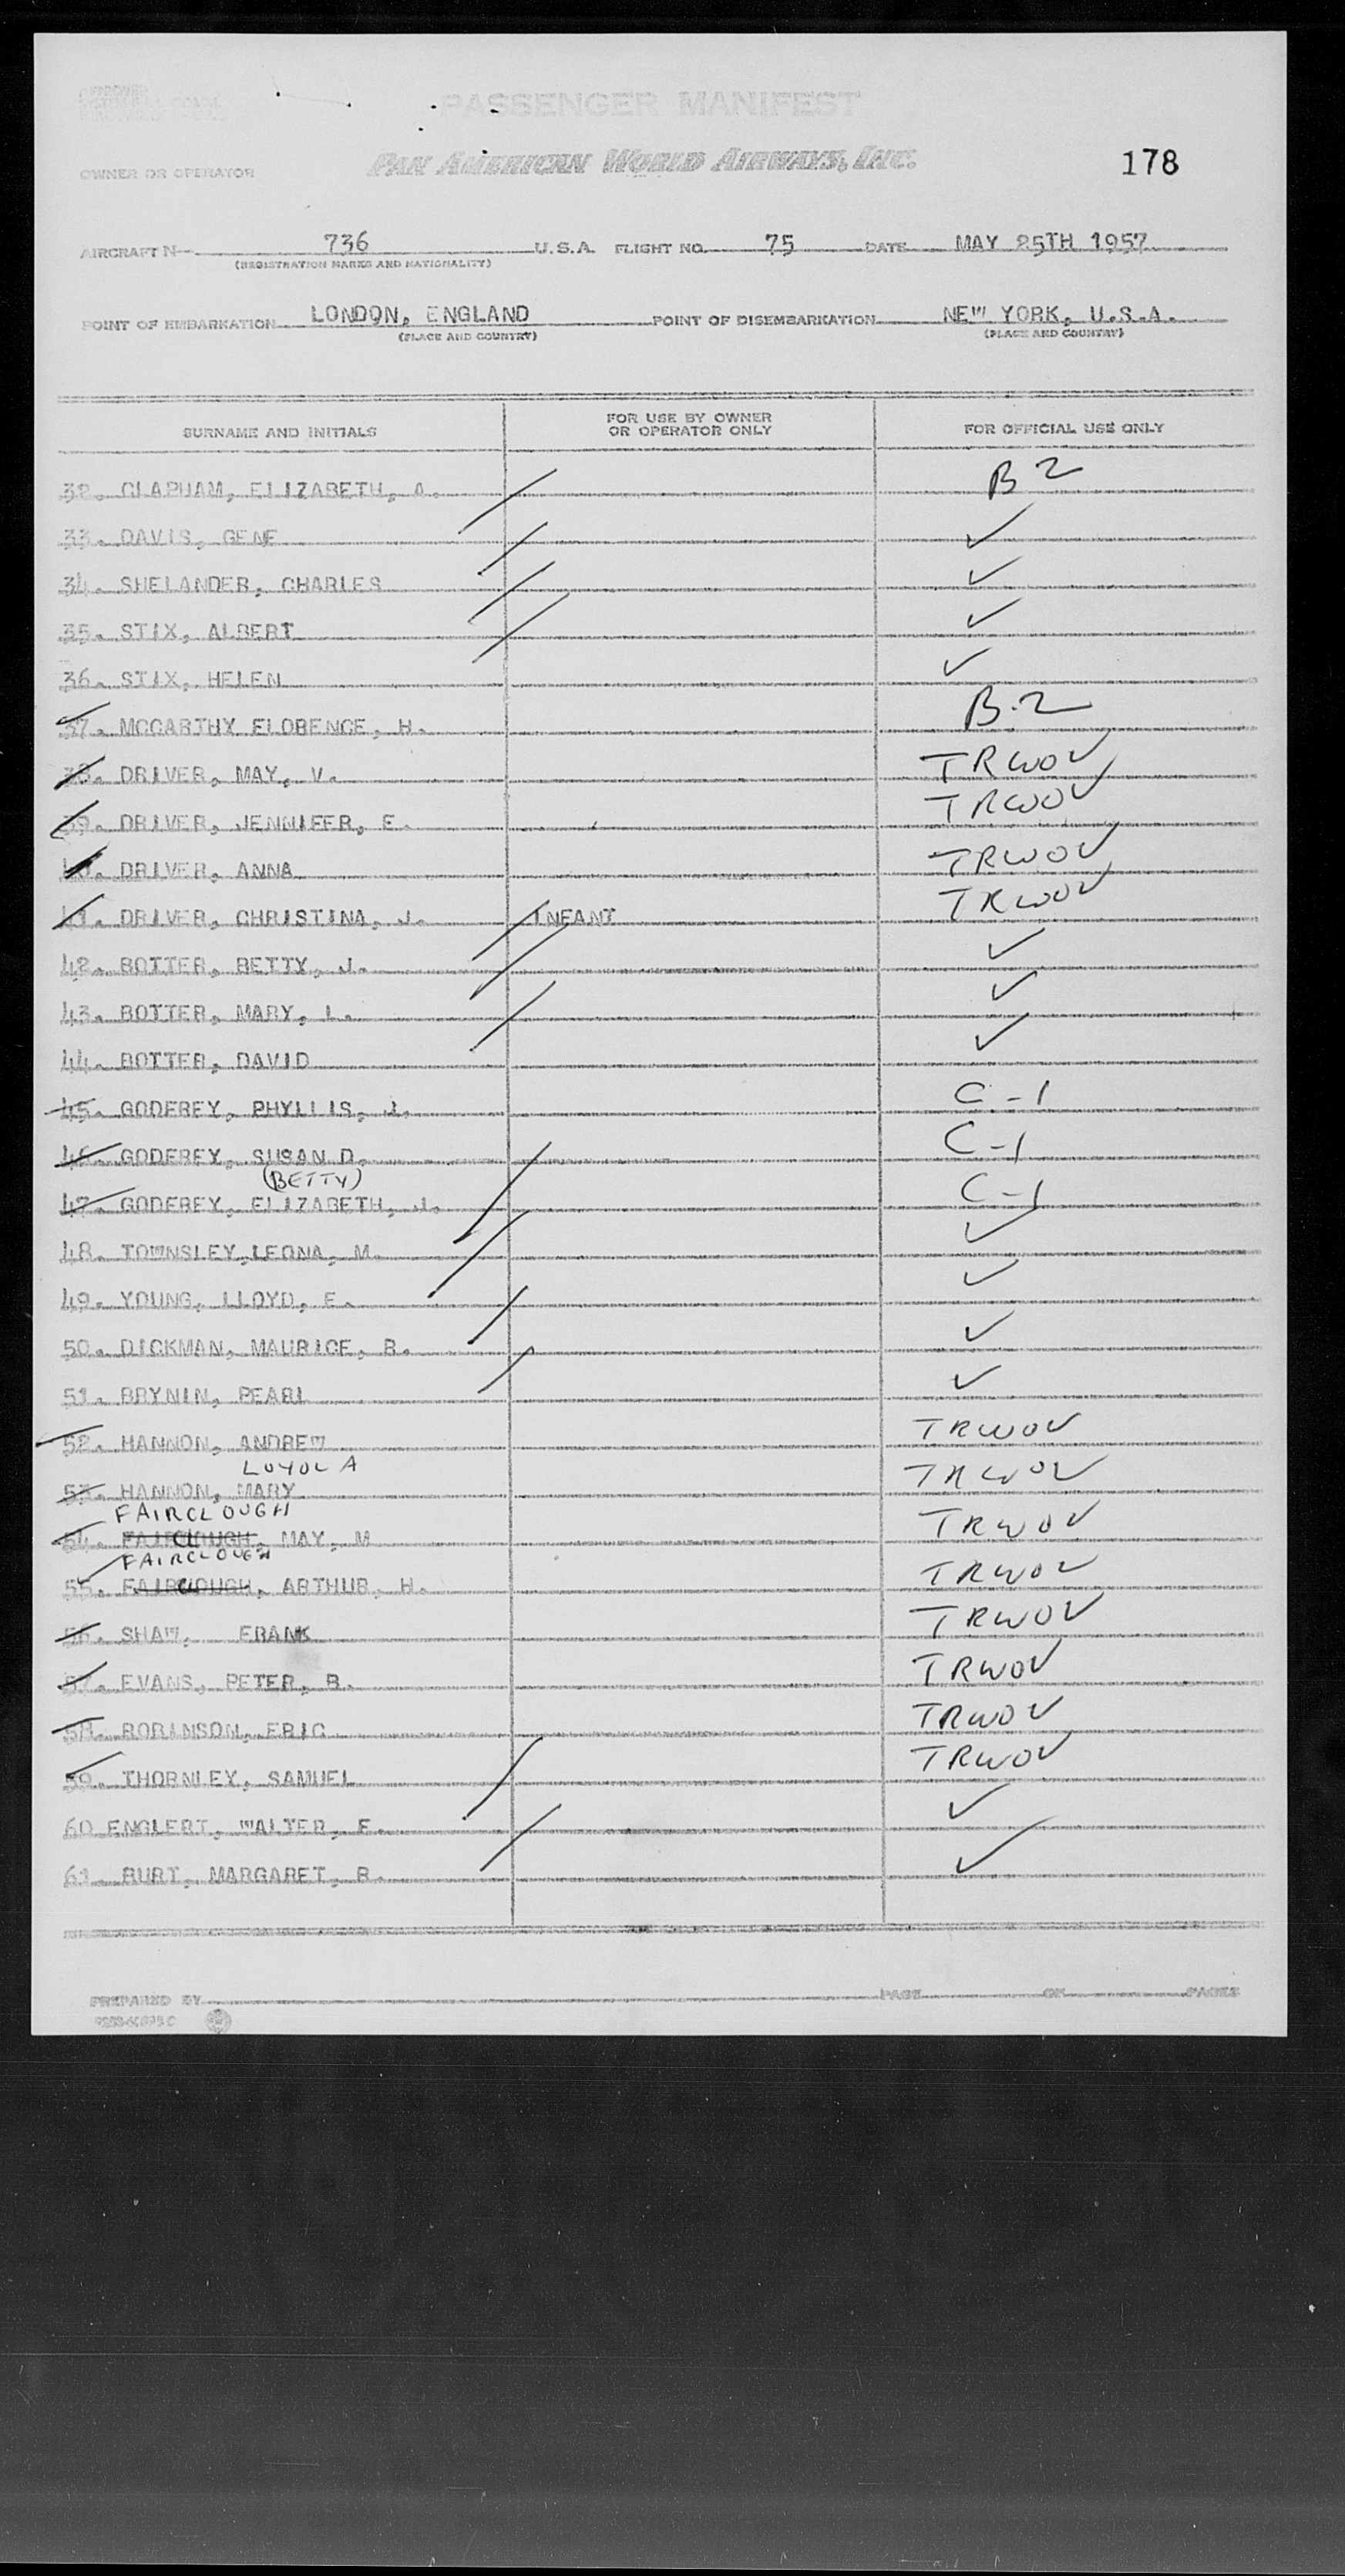 PASSENGER MANIFEST
PAN AMERICAN WORLD AIRWAYS, INC.
178
OWNER OR OPERATOR
AIRCRAFT N 736 U.S.A. FLIGHT NO. 75 DATE MAY 25TH 1957
(REGISTRATION MARKS AND NATIONALITY)
POINT OF EMBARKATION LONDON, ENGLAND POINT OF DISEMBARKATION NEW YORK, U.S.A.
(PLACE AND COUNTRY) (PLACE AND COUNTRY)
SURNAME AND INITIALS FOR USE BY OWNER OR OPERATOR ONLY FOR OFFICIAL USE ONLY
32. CLAPHAM, ELIZABETH, A. B2
33. DAVIS, GENE ✓
34. SHELANDER, CHARLES ✓
35. STIX, ALBERT ✓
36. STIX, HELEN ✓
37. MCCARTHY FLORENCE, H. B.2
38. DRIVER, MAY, V. TRWOV
39. DRIVER, JENNIFER, E. TRWOV
40. DRIVER, ANNA TRWOV
41. DRIVER, CHRISTINA, J. INFANT TRWOV
42. BOTTER, BETTY, J. ✓
43. BOTTER, MARY, L. ✓
44. BOTTER, DAVID ✓
45. GODFREY, PHYLLIS, J. C-1
46. GODFREY, SUSAN D. C-1
(BETTY)
47. GODFREY, ELIZABETH, J. C-1
48. TOWNSLEY, LEONA, M. ✓
49. YOUNG, LLOYD, E. ✓
50. DICKMAN, MAURICE, R. ✓
51. BRYNIN, PEARL ✓
52. HANNON, ANDREW TRWOV
LOYOLA
53. HANNON, MARY TRWOV
FAIRCLOUGH
54. MAY, M TRWOV
FAIRCLOUGH
55. ARTHUR, H. TRWOV
56. SHAW, FRANK TRWOV
57. EVANS, PETER, B. TRWOV
58. ROBINSON, ERIC TRWOV
59. THORNLEY, SAMUEL TRWOV
60 ENGLERT, WALTER, F. ✓
61. BURT, MARGARET, B. ✓
PREPARED BY PAGE OF PAGES